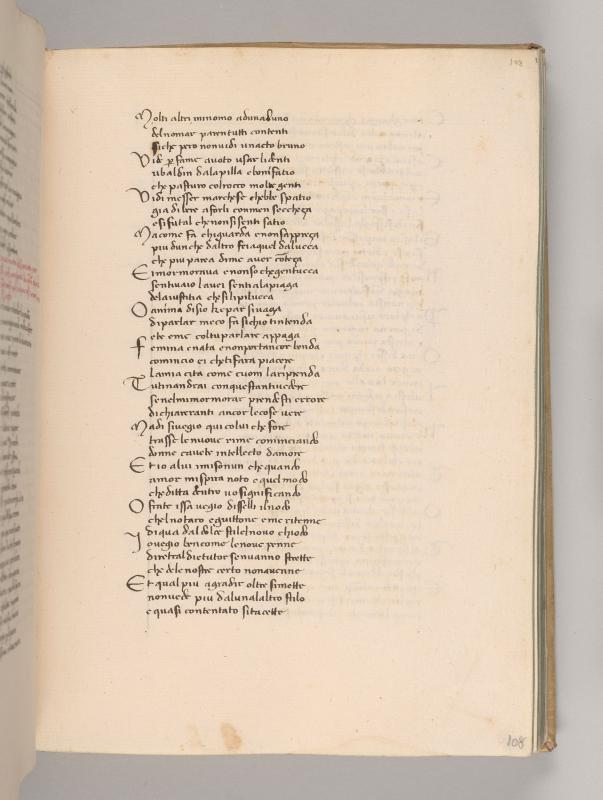 108
Molti altri minomo aduna duno
del nomar parentutti contenti
siche pero non vidi un acto bruno
Vidi p fame avoto usar li denti
ubaldin da la pilla e bonifatio
che pasturo col rocco molte genti
Vidi messer marchese chebbe spatio
gia di bere a forli con men seccheça
e si fu tal che non si senti satio
Ma come fa chi guarda e non sappreça
piu dun che daltro fei a quel da lucca
che piu parea di me aver conteça
El mormorava e non so che gentucca
sentivaio la vei senti a la piaga
de la iustitia che si li pilucca
O anima disio che par si vaga
di parlar meco fa si chio tintenda
e te e me col tu parlare appaga
Femina e nata e non porta ancor benda
comincio ei che ti fara piacere
la mia cita come cuom la riprenda
Tu ti nandrai con questo antivedere
se nel mi mormorar prendesti errore
dichiareranti ancor le cose vere
Ma di sivegio qui colui che fore
trasse le nuove rime cominciando
donne cavete intellecto damore
Et io a lui i mi son un che quando
amor mi spira noto e quel modo
che ditta dentro vo significando
O frate issa vegio disselli il nodo
chel notaro e guittone e me ritenne
di qua dal dolce stil chnovo chiodo
Io vegio ben come le nove penne
diretral dictator sen vanno strette
che de le nostre certo non avenne
Et qual piu a gradir oltre si mette
non vede piu da luno a laltro stilo
e quasi contentato si tacette
108